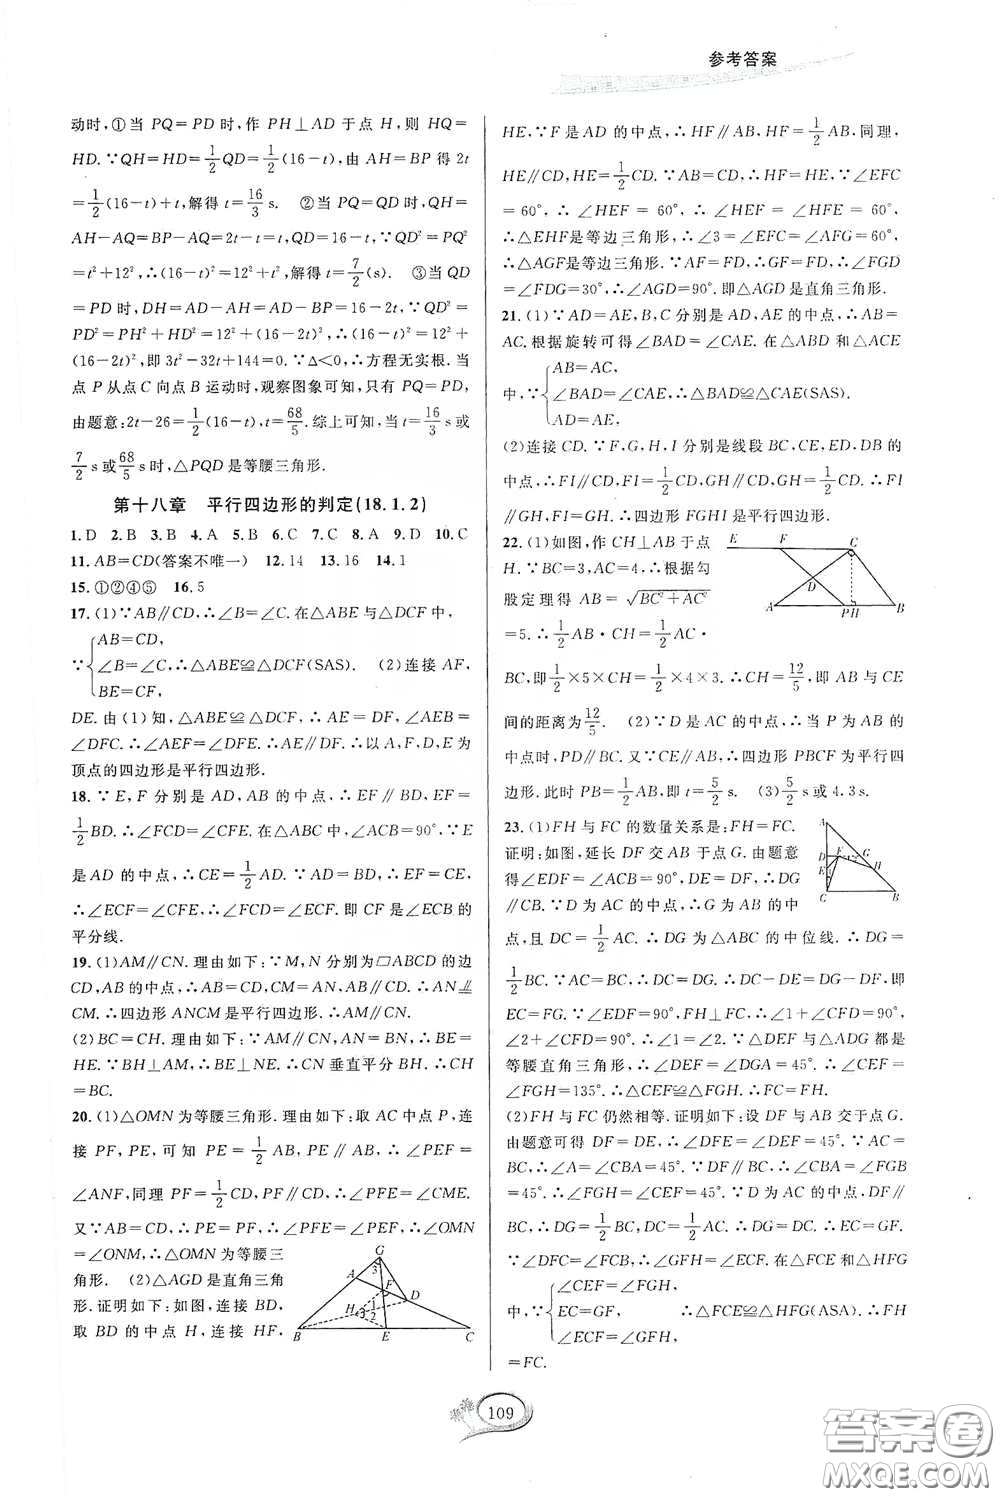 参考答案
动时,①当 PQ=PD 时,作 PH⊥AD 于点 H,则 HQ=
HD.∵QH=HD=1/2QD=1/2(16-t),由 AH=BP 得 2t
=1/2(16-t)+t,解得 t=16/3 s. ②当 PQ=QD 时,QH=
AH-AQ=BP-AQ=2t-t=t,QD=16-t,∵QD²=PQ²
=t²+12²,∴(16-t)²=12²+t²,解得 t=7/2(s). ③当 QD
=PD 时,DH=AD-AH=AD-BP=16-2t,∵QD²=
PD²=PH²+HD²=12²+(16-2t)²,∴(16-t)²=12²+
(16-2t)²,即3t²-32t+144=0.∵Δ<0,∴方程无实根.当
点 P 从点 C 向点 B 运动时,观察图象可知,只有 PQ=PD,
由题意:2t-26=1/2(16-t),t=68/5.综上可知,当 t=16/3 s或
7/2 s或68/5 s时,△PQD 是等腰三角形.
第十八章 平行四边形的判定(18.1.2)
1.D 2.B 3.B 4.A 5.B 6.C 7.C 8.A 9.D 10.C
11.AB=CD(答案不唯一) 12.14 13.16 14.1
15.①②④⑤ 16.5
17.(1)∵AB∥CD,∴∠B=∠C.在△ABE与△DCF中,
AB=CD,
∵{∠B=∠C,∴△ABE≌△DCF(SAS). (2)连接 AF,
BE=CF,
DE.由(1)知,△ABE≌△DCF,∴AE=DF,∠AEB=
∠DFC.∴∠AEF=∠DFE.∴AE∥DF.∴以 A,F,D,E为
顶点的四边形是平行四边形.
18.∵E,F 分别是 AD,AB 的中点,∴EF∥BD,EF=
1/2BD.∴∠FCD=∠CFE.在△ABC中,∠ACB=90°,∵E
是AD 的中点,∴CE=1/2AD.∵AD=BD,∴EF=CE.
∴∠ECF=∠CFE,∴∠FCD=∠ECF.即CF是∠ECB的
平分线.
19.(1)AM∥CN.理由如下:∵M,N 分别为▱ABCD的边
CD,AB的中点,∴AB=CD,CM=AN,AB∥CD.∴AN⫽
CM.∴四边形 ANCM 是平行四边形.∴AM∥CN.
(2)BC=CH.理由如下:∵AM∥CN,AN=BN,∴BE=
HE.∵BH⊥AM,∴BH⊥NE.∴CN垂直平分BH.∴CH
=BC.
20.(1)△OMN为等腰三角形.理由如下:取AC中点P,连
接 PF,PE,可知 PE=1/2AB,PE∥AB.∴∠PEF=
∠ANF,同理 PF=1/2CD,PF∥CD.∴∠PFE=∠CME.
又∵AB=CD,∴PE=PF,∴∠PFE=∠PEF,∴∠OMN
=∠ONM,∴△OMN为等腰三
角形. (2)△AGD是直角三角
形.证明如下:如图,连接BD,
取 BD 的中点 H,连接 HF,
G
3
A
F
D
H
1
3 2
B
E
C
HE,∵F是AD 的中点,∴HF∥AB,HF=1/2AB,同理,
HE∥CD,HE=1/2CD.∵AB=CD,∴HF=HE.∵∠EFC
=60°,∴∠HEF=60°,∴∠HEF=∠HFE=60°,
∴△EHF是等边三角形,∴∠3=∠EFC=∠AFG=60°,
∴△AGF是等边三角形.∵AF=FD,∴GF=FD,∴∠FGD
=∠FDG=30°,∴∠AGD=90°.即△AGD是直角三角形.
21.(1)∵AD=AE,B,C分别是AD,AE的中点,∴AB=
AC.根据旋转可得∠BAD=∠CAE.在△ABD和△ACE
AB=AC,
中,∵{∠BAD=∠CAE,∴△BAD≌△CAE(SAS).
AD=AE,
(2)连接CD.∵F,G,H,I分别是线段BC,CE,ED,DB的
中点,∴FI∥CD,FI=1/2CD,GH∥CD,GH=1/2CD.∴FI
∥GH,FI=GH.∴四边形 FGHI是平行四边形.
22.(1)如图,作CH⊥AB于点
H.∵BC=3,AC=4,∴根据勾
股定理得 AB=√BC²+AC²
=5.∴1/2AB·CH=1/2AC·
E
F
C
D
A
PH
B
BC,即1/2×5×CH=1/2×4×3.∴CH=12/5,即 AB 与CE
间的距离为12/5. (2)∵D是AC的中点,∴当 P为AB的
中点时,PD∥BC.又∵CE∥AB,∴四边形 PBCF为平行四
边形.此时PB=1/2AB,即t=5/2 s. (3)5/2 s或4.3 s.
23.(1)FH与FC的数量关系是:FH=FC.
证明:如图,延长DF交AB于点G.由题意
得∠EDF=∠ACB=90°,DE=DF,∴DG
∥CB.∵D为AC的中点,∴G为AB的中
A
D
F
G
H
E
C
B
点,且DC=1/2AC.∴DG为△ABC的中位线.∴DG=
1/2BC.∵AC=BC,∴DC=DG.∴DC-DE=DG-DF,即
EC=FG.∵∠EDF=90°,FH⊥FC,∴∠1+∠CFD=90°,
∠2+∠CFD=90°.∴∠1=∠2.∵△DEF与△ADG都是
等腰直角三角形,∴∠DEF=∠DGA=45°.∴∠CEF=
∠FGH=135°.∴△CEF≌△FGH.∴CF=FH.
(2)FH与FC仍然相等.证明如下:设DF与AB交于点G.
由题意可得 DF=DE,∴∠DFE=∠DEF=45°.∵AC=
BC,∴∠A=∠CBA=45°.∵DF∥BC,∴∠CBA=∠FGH
=45°,∴∠FGH=∠CEF=45°.∵D为AC的中点,DF∥
BC,∴DG=1/2BC,DC=1/2AC.∴DG=DC.∴EC=GF.
∵∠DFC=∠FCB,∴∠GFH=∠ECF.在△FCE和△HFG
∠CEF=∠FGH,
中,∵{EC=GF, ∴△FCE≌△HFG(ASA).∴FH
∠ECF=∠GFH,
=FC.
109
答案圈
MXQE.COM